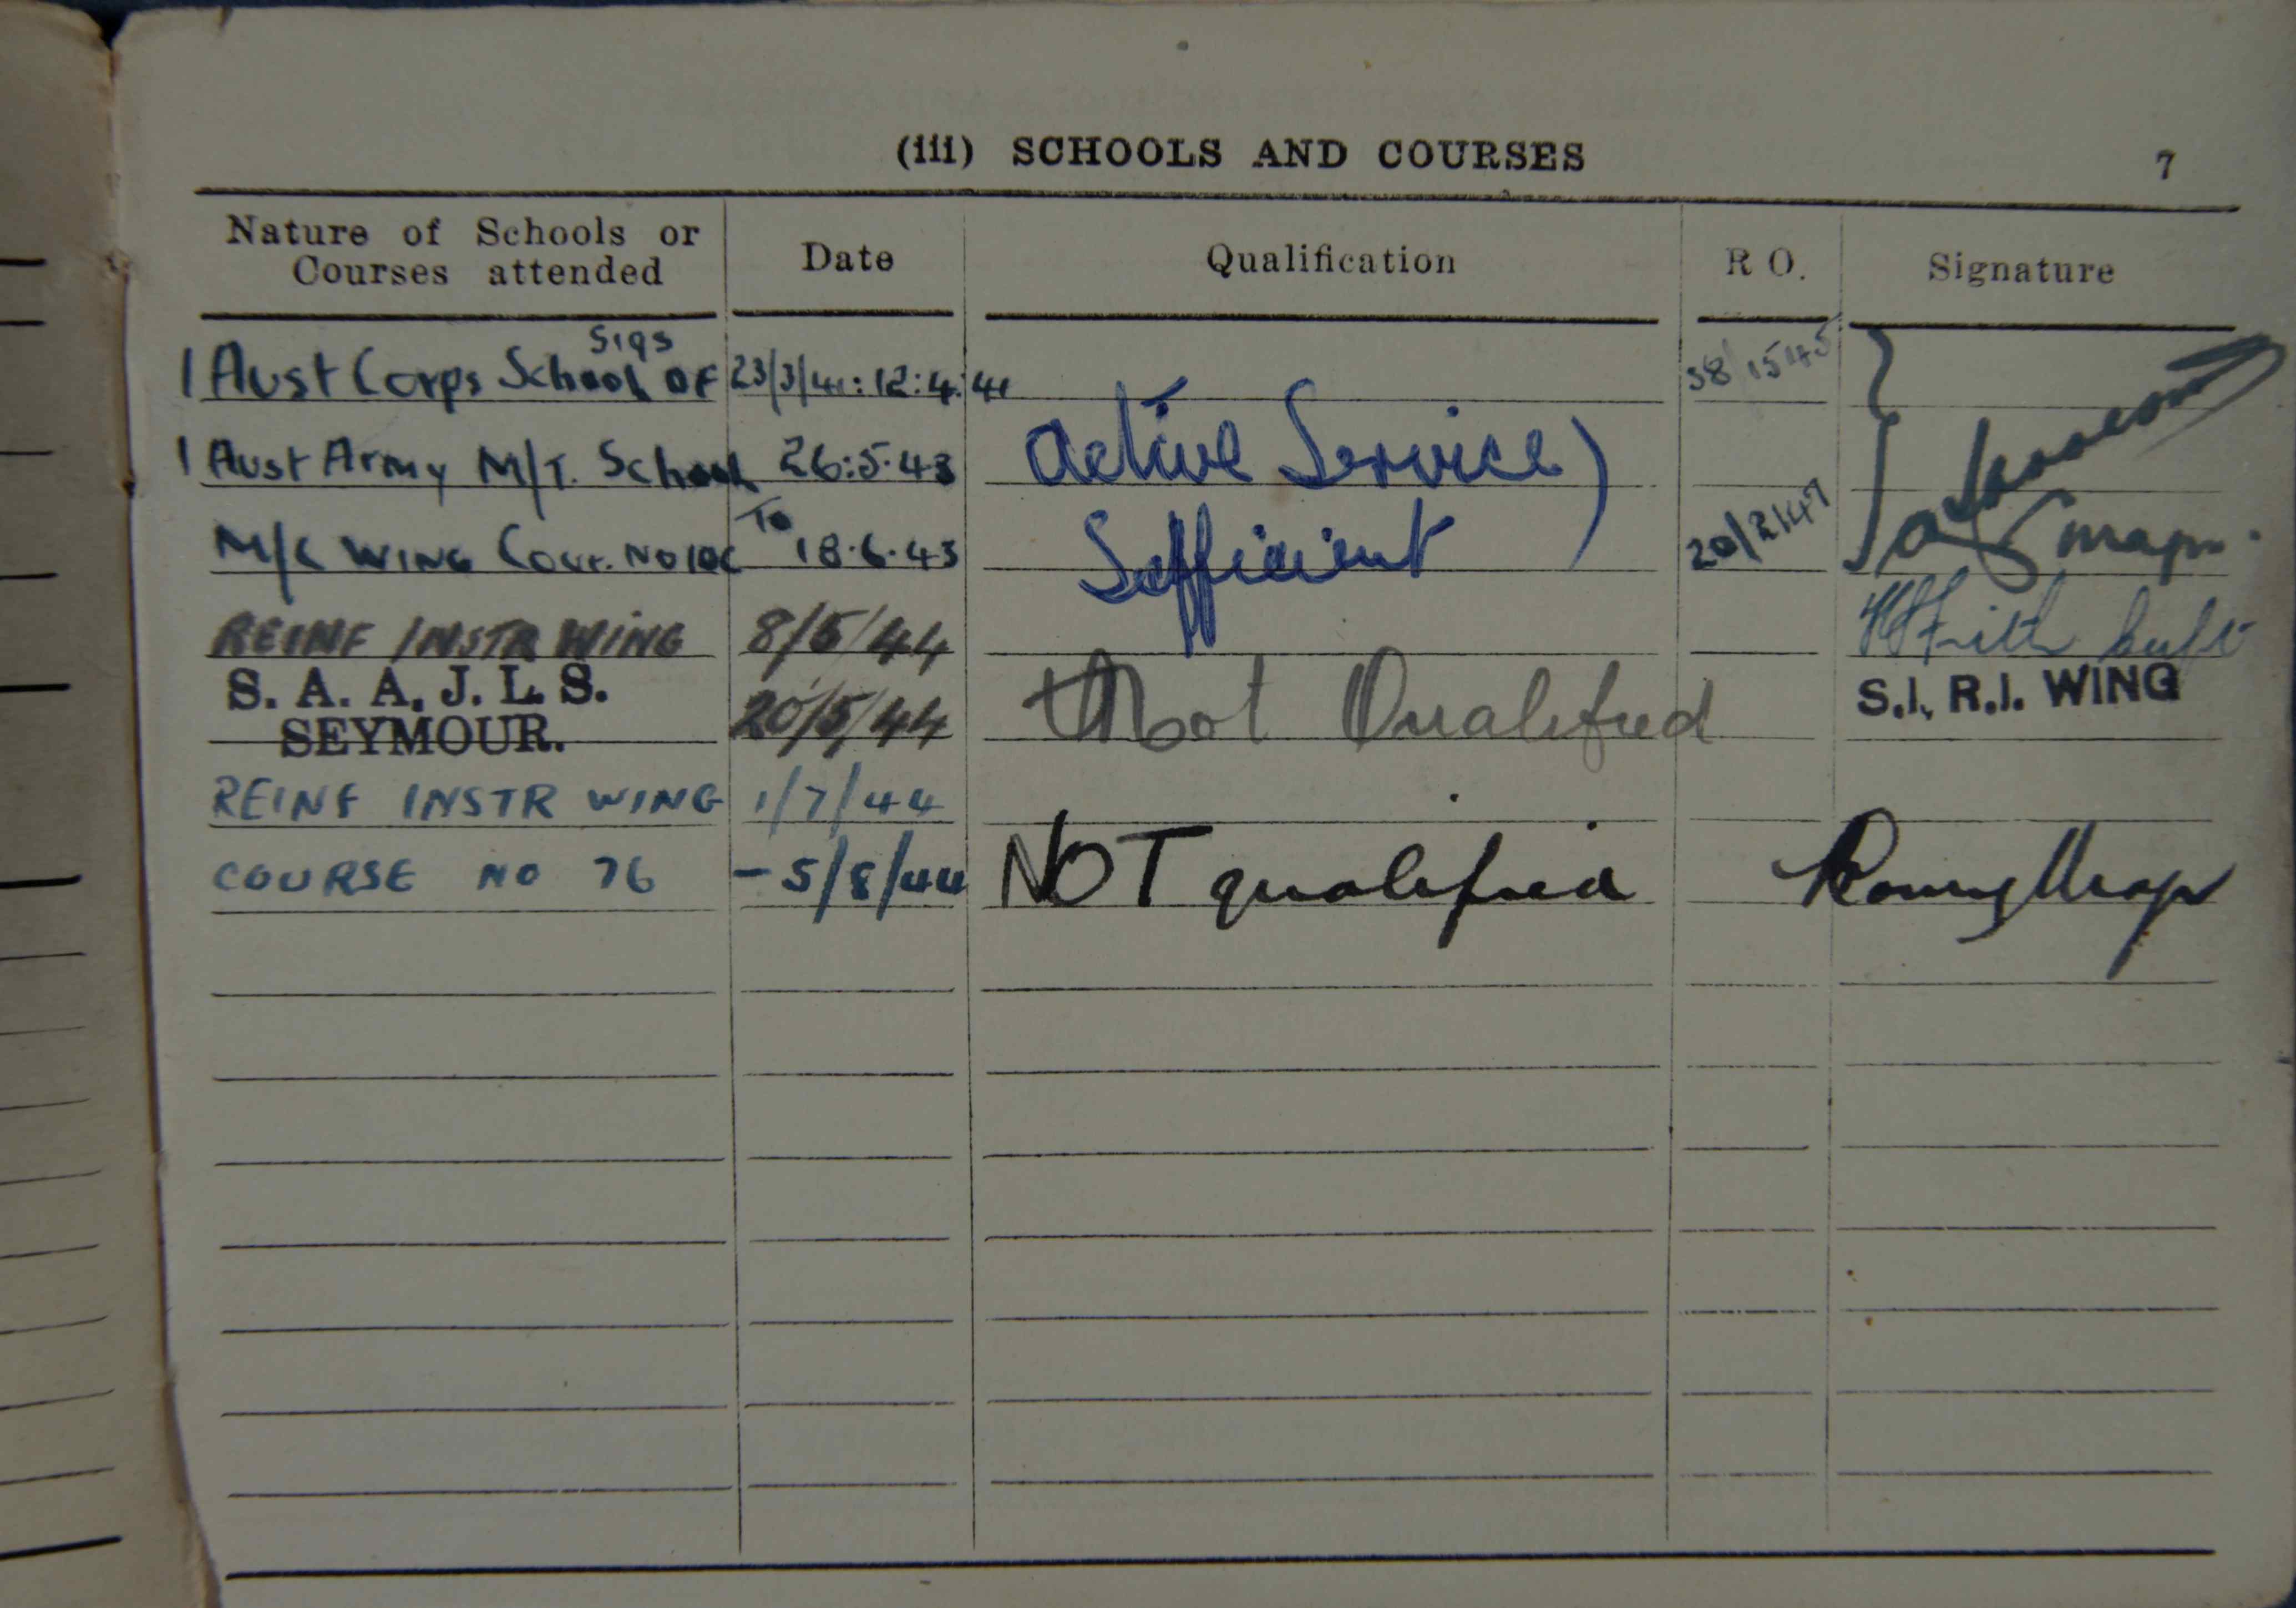 (iii) SCHOOLS AND COURSES 7
Nature of Schools or Courses attended Date Qualification R O. Signature
Sigs
1 Aust Corps School OF 23/3/41: 12:4:41
1 Aust Army M/T. School 26:5.43 Active Service)
To
M/C WING 18.6.43 Sufficient 20/2147
REINF INSTR WING 8/5/44
S. A. A, J. L. S. S.I, R.I. WING
SEYMOUR. 20/5/44 Not Qualified
REINF INSTR WING 1/7/44
COURSE NO 76 - 5/8/44 NOT qualified